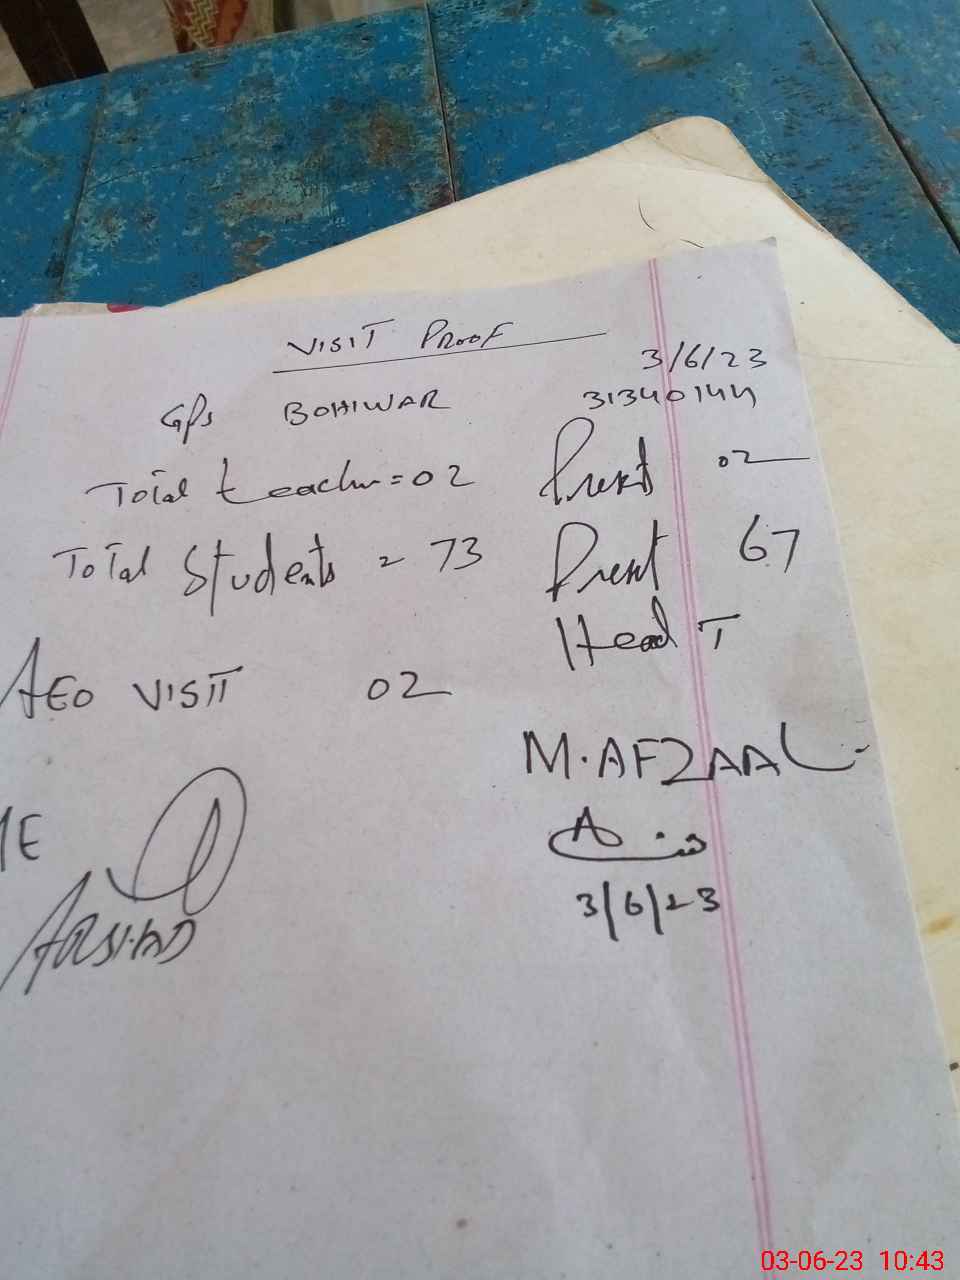 VISIT PROOF
3/6/23
GPS BOHIWAR 31340144
Total teacher = 02 Present 02
Total Students = 73 Present 67
Head T
AEO VISIT 02
M. AFZAAL
ARSHAD
3/6/23
03-06-23 10:43